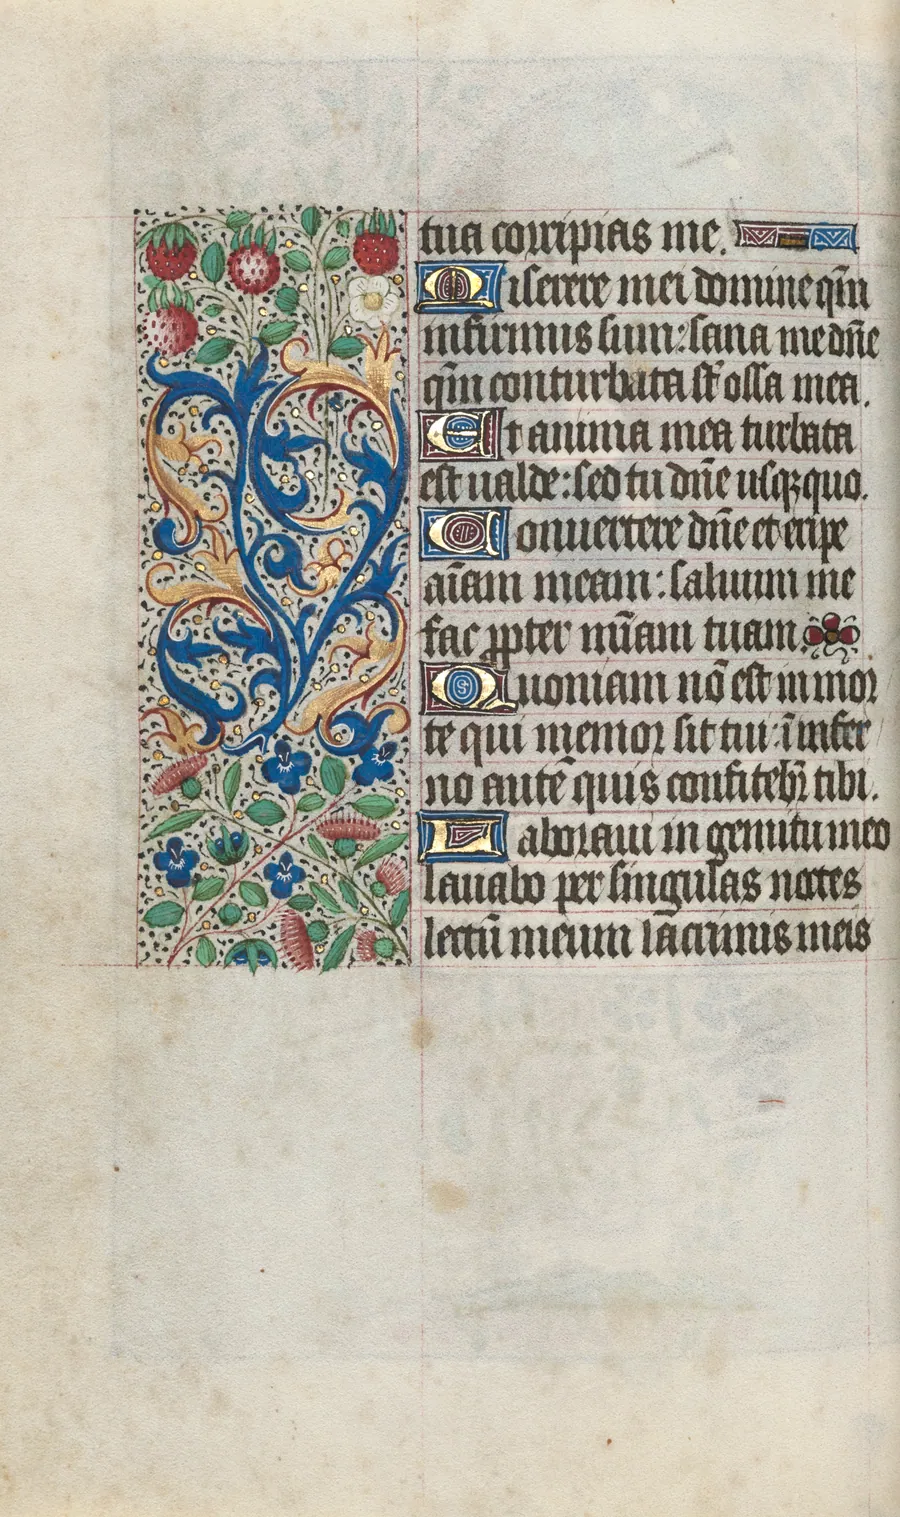 tua corripias me.
Miserere mei domine qm̄
infirmus sum: sana me dn̄e
qm̄ conturbata st̄ ossa mea.
Et anima mea turbata
est ualde: sed tu dn̄e usqꝫquo.
Conuertere dn̄e et eripe
aīam meam: saluum me
fac ꝓpter mīam tuam.
Quoniam nō est in mor
te qui memor sit tui: ī infer
no autē quis confitebr̄ tibi.
Laboraui in gemitu meo
lauabo per singulas noctes
lectū meum lācrimis meis